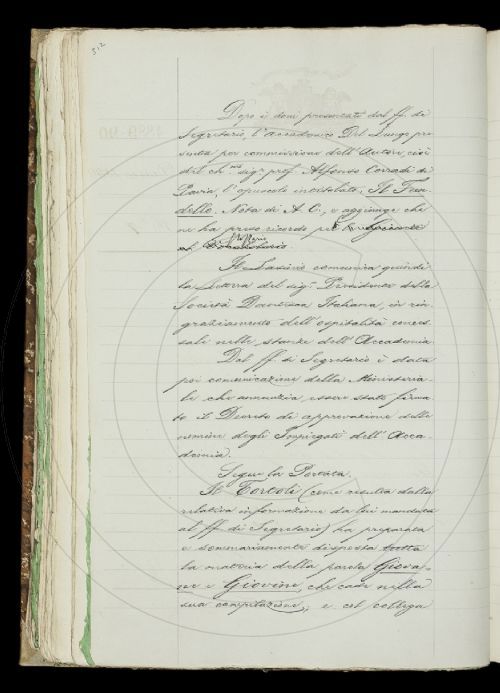 312
Dopo i doni presentati dal ff. di
Segretario, l'accademico Del Lungo pre
senta per commissione dell'Autore, cioè
del ch.mo sig.r prof. Alfonso Corradi di
Pavia, l'opuscolo intitolato: Il
dello. Nota di A. C., e aggiunge che
ne ha preso ricordo per
al
Il Lasinio comunica quindi
la lettera del sig.r Presidente della
Società Dantesca Italiana, in rin
graziamento dell'ospitalità conces
sale nelle stanze dell'Accademia.
Dal ff. di Segretario è data
poi comunicazione della Ministeria
le che annunzia essere stato firma
to il Decreto di approvazione delle
nomine degli Impiegati dell'Acca
demia.
Segue la Portata.
Il Tortoli (come risulta dalla
relativa informazione da lui mandata
al ff. di Segretario) ha preparata
e sommariamente disposta tutta
la materia della parola Giova-
ne e Giovine, che cade nella
sua compilazione; e col collega